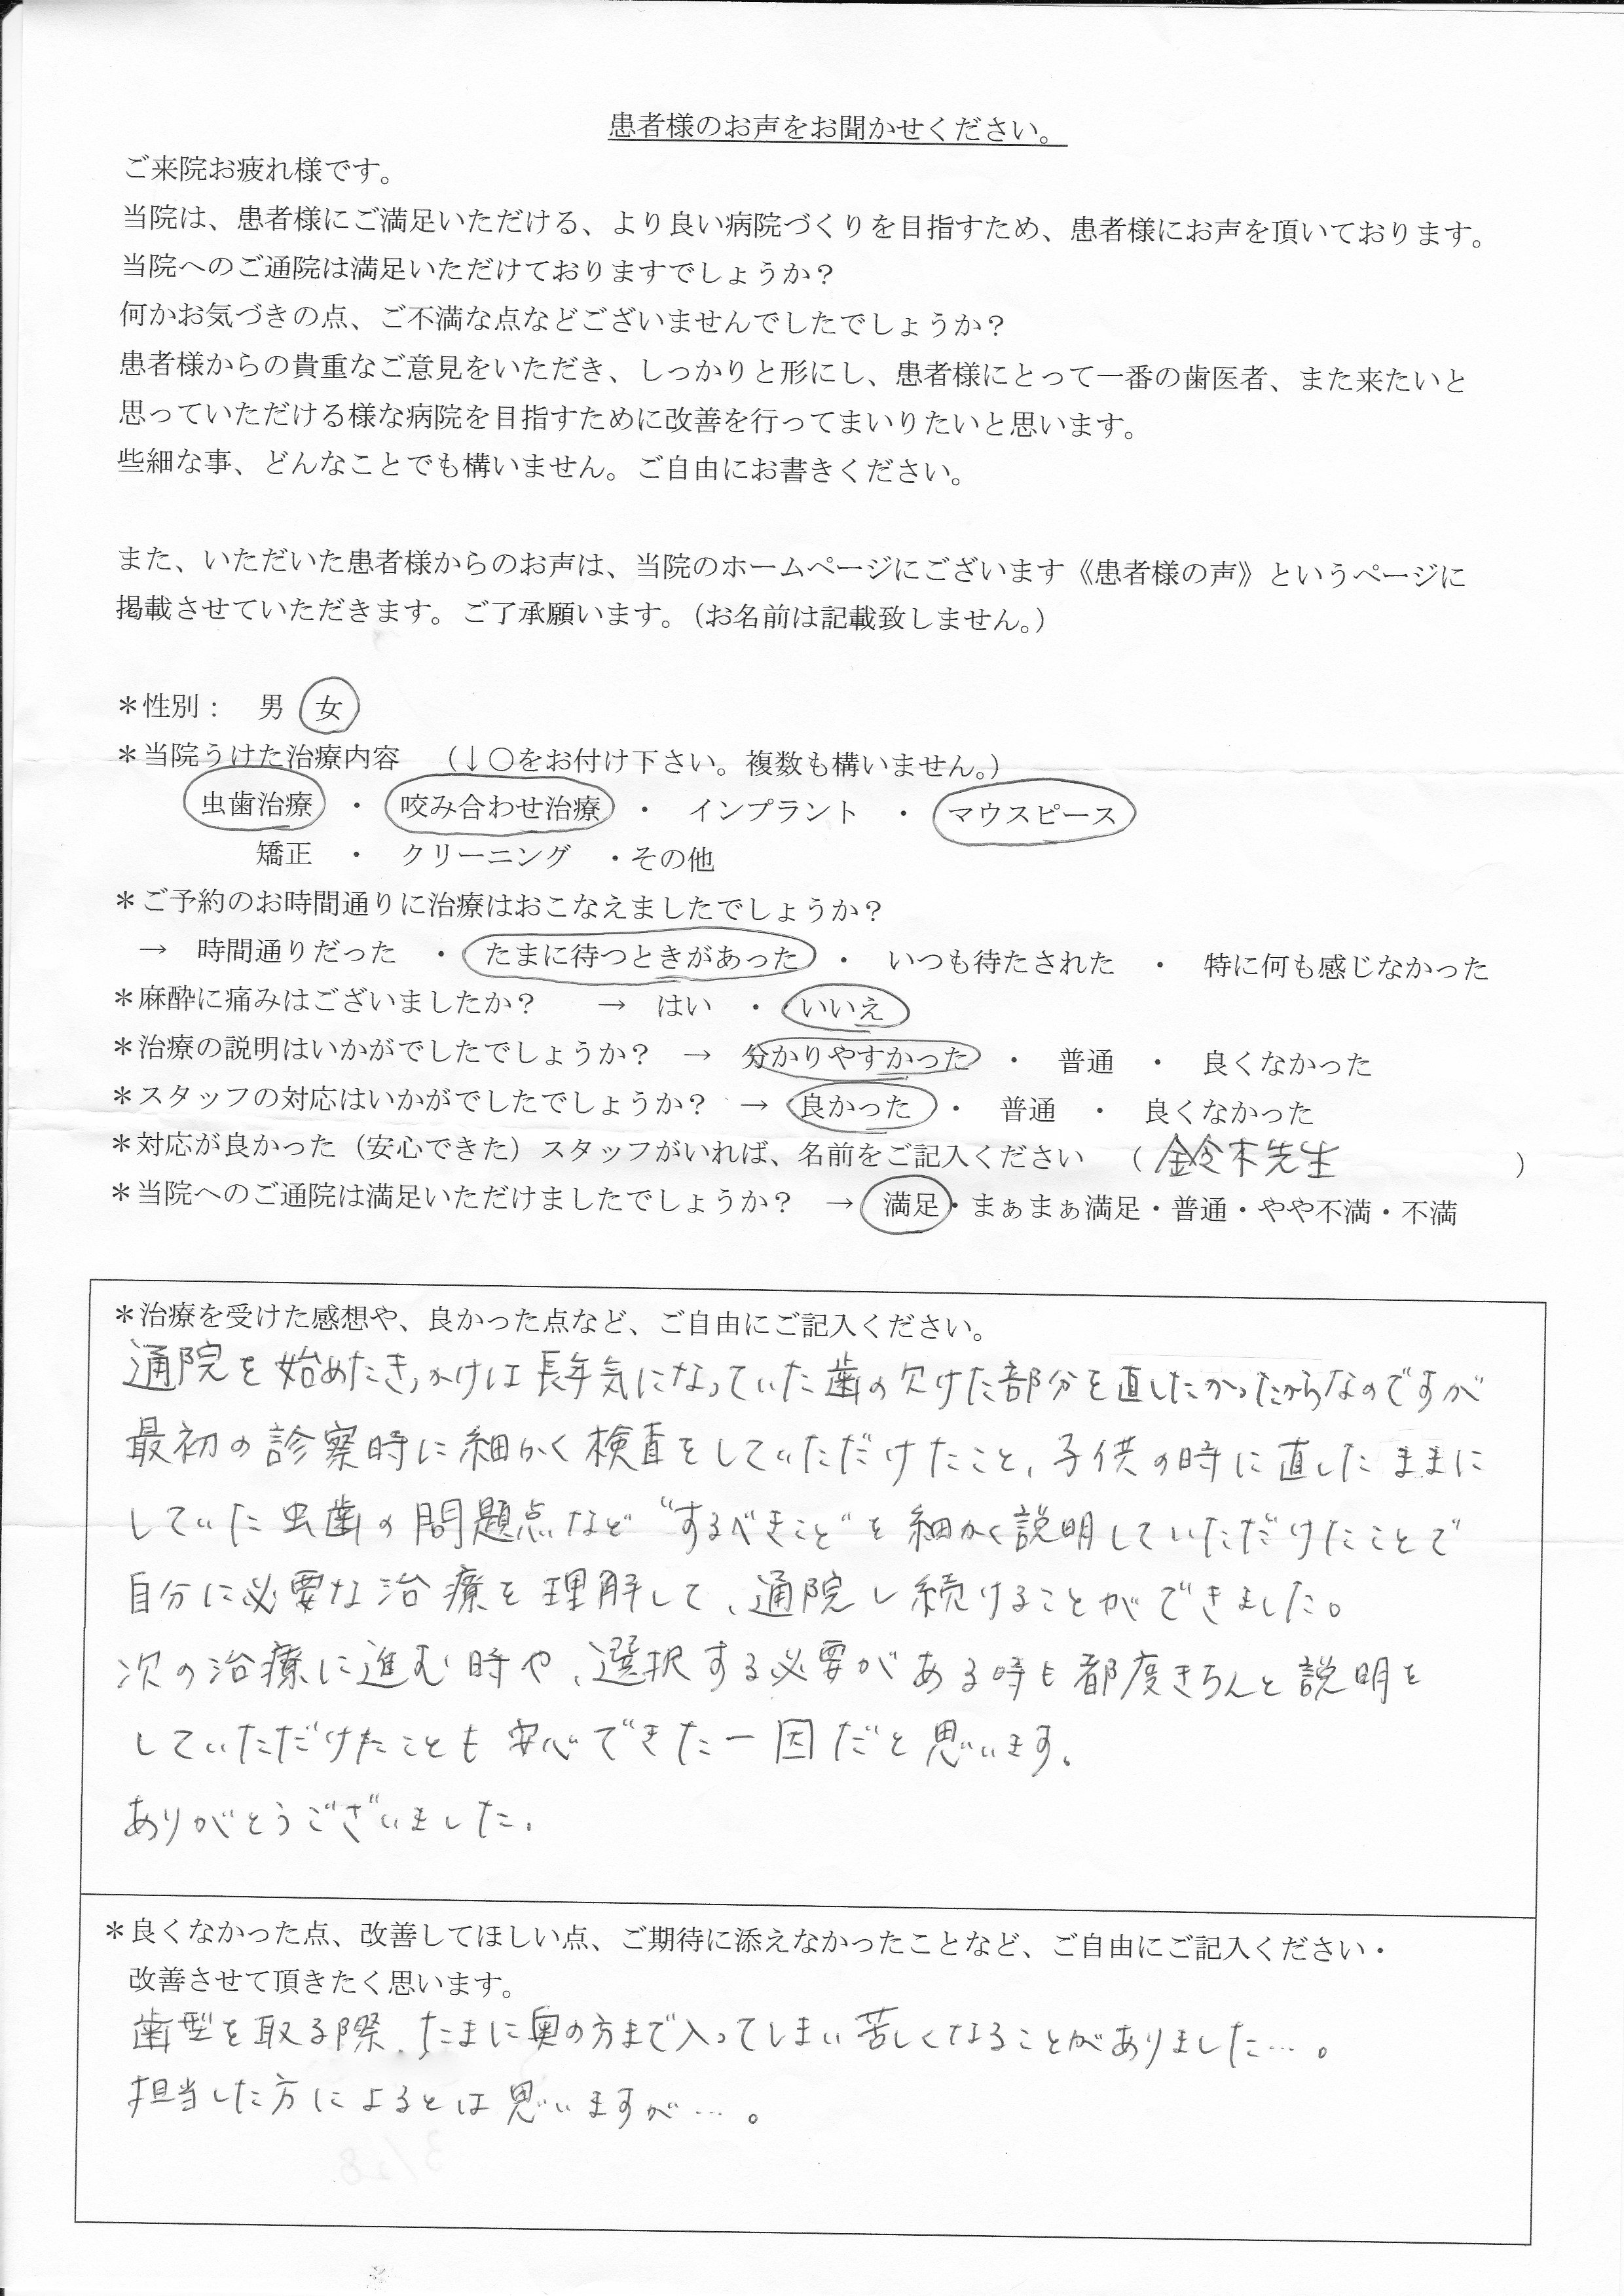 患者様のお声をお聞かせください。
ご来院お疲れ様です。
当院は、患者様にご満足いただける、より良い病院づくりを目指すため、患者様にお声を頂いております。
当院へのご通院は満足いただけておりますでしょうか？
何かお気づきの点、ご不満な点などございませんでしたでしょうか？
患者様からの貴重なご意見をいただき、しっかりと形にし、患者様にとって一番の歯医者、また来たいと
思っていただける様な病院を目指すために改善を行ってまいりたいと思います。
些細な事、どんなことでも構いません。ご自由にお書きください。
また、いただいた患者様からのお声は、当院のホームページにございます《患者様の声》というページに
掲載させていただきます。ご了承願います。（お名前は記載致しません。）
＊性別： 男 女
＊当院うけた治療内容 （↓○をお付け下さい。複数も構いません。）
虫歯治療 ・ 咬み合わせ治療 ・ インプラント ・ マウスピース
矯正 ・ クリーニング ・その他
＊ご予約のお時間通りに治療はおこなえましたでしょうか？
→ 時間通りだった ・ たまに待つときがあった ・ いつも待たされた ・ 特に何も感じなかった
＊麻酔に痛みはございましたか？ → はい ・ いいえ
＊治療の説明はいかがでしたでしょうか？ → 分かりやすかった ・ 普通 ・ 良くなかった
＊スタッフの対応はいかがでしたでしょうか？ → 良かった ・ 普通 ・ 良くなかった
＊対応が良かった（安心できた）スタッフがいれば、名前をご記入ください （ 鈴木先生 ）
＊当院へのご通院は満足いただけましたでしょうか？ → 満足・まぁまぁ満足・普通・やや不満・不満
＊治療を受けた感想や、良かった点など、ご自由にご記入ください。
通院を始めたきっかけは長年気になっていた歯の欠けた部分を直したかったからなのですが
最初の診察時に細かく検査をしていただけたこと、子供の時に直したままに
していた虫歯の問題点など“するべきこと”を細かく説明していただけたことで
自分に必要な治療を理解して、通院し続けることができました。
次の治療に進む時や、選択する必要がある時も都度きちんと説明を
していただけたことも安心できた一因だと思います。
ありがとうございました。
＊良くなかった点、改善してほしい点、ご期待に添えなかったことなど、ご自由にご記入ください・
改善させて頂きたく思います。
歯型を取る際、たまに奥の方まで入ってしまい苦しくなることがありました…。
担当した方によるとは思いますが…。